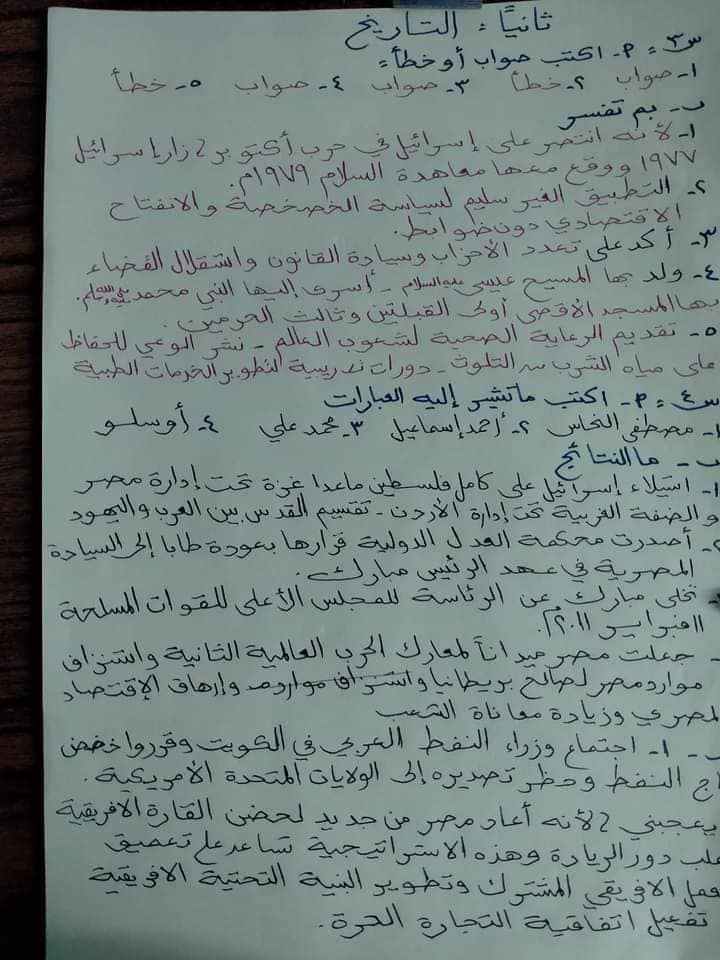 ثانيًا: التاريخ
س٣: ٩- اكتب صواب أو خطأ:
١- صواب ٢- خطأ ٣- صواب ٤- صواب ٥- خطأ
ب- بم تفسر
١- لأنه انتصر على إسرائيل في حرب أكتوبر / زار إسرائيل
١٩٧٧ ووقع معها معاهدة السلام ١٩٧٩م.
٢- التطبيق الغير سليم لسياسة الخصخصة والانفتاح
الاقتصادي دون ضوابط.
٣- أكد على تعدد الأحزاب وسيادة القانون واستقلال القضاء
٤- ولد بها المسيح عيسى عليه السلام - أسرى إليها النبي محمد ﷺ.
بها المسجد الأقصى أولى القبلتين وثالث الحرمين.
٥- تقديم الرعاية الصحية لشعوب العالم - نشر الوعي للحفاظ
على مياه الشرب من التلوث - دورات تدريبية لتطوير الخدمات الطبية
س٤: ٩- اكتب ما تشير إليه العبارات
١- مصطفى النحاس ٢- أحمد إسماعيل ٣- محمد علي ٤- أوسلو
ب- ما النتائج
١- استيلاء إسرائيل على كامل فلسطين ماعدا غزة تحت إدارة مصر
والضفة الغربية تحت إدارة الأردن - تقسيم القدس بين العرب واليهود
٢- أصدرت محكمة العدل الدولية قرارها بعودة طابا إلى السيادة
المصرية في عهد الرئيس مبارك.
تخلى مبارك عن الرئاسة للمجلس الأعلى للقوات المسلحة
١١ فبراير ٢٠١١م.
- جعلت مصر ميداناً لمعارك الحرب العالمية الثانية واستنزاف
موارد مصر لصالح بريطانيا وإرهاق الإقتصاد
لمصري وزيادة معاناة الشعب
- ١- اجتماع وزراء النفط العربي في الكويت وقرروا خفض
اج النفط وحظر تصديره إلى الولايات المتحدة الأمريكية.
يعجبني / لأنه أعاد مصر من جديد لحضن القارة الافريقية
علب دور الريادة وهذه الاستراتيجية تساعد على تعميق
عمل الافريقي المشترك وتطوير البنية التحتية الافريقية
تفعيل اتفاقية التجارة الحرة.